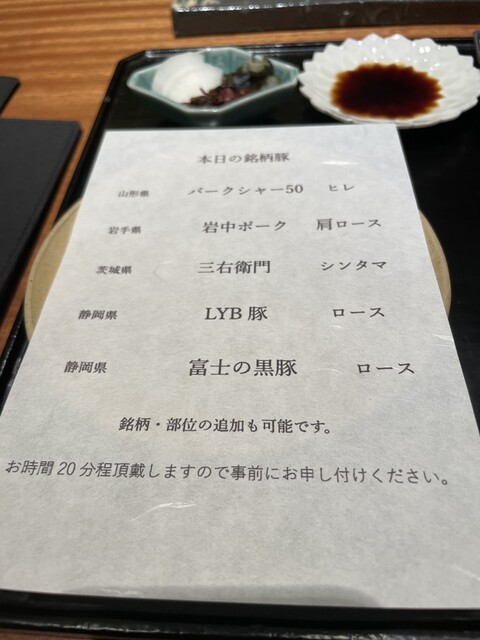 本日の銘柄豚
山形県 バークシャー50 ヒレ
岩手県 岩中ポーク 肩ロース
茨城県 三右衛門 シンタマ
静岡県 LYB豚 ロース
静岡県 富士の黒豚 ロース
銘柄・部位の追加も可能です。
お時間20分程頂戴しますので事前にお申し付けください。